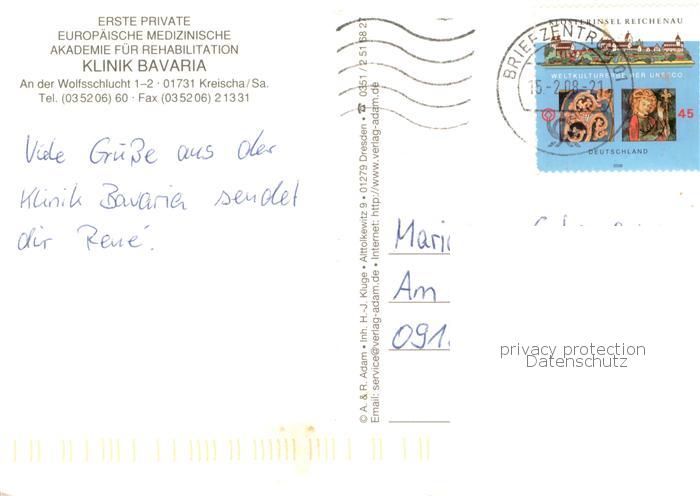 ERSTE PRIVATE
EUROPÄISCHE MEDIZINISCHE
AKADEMIE FÜR REHABILITATION
KLINIK BAVARIA
An der Wolfsschlucht 1–2 · 01731 Kreischa/Sa.
Tel. (03 52 06) 60 · Fax (03 52 06) 2 13 31
Viele Grüße aus der
Klinik Bavaria sendet
dir René.
© A. & R. Adam • Inh. H.-J. Kluge • Alttolkewitz 9 • 01279 Dresden • ☎ 0351 / 2 51 68 27
Email: service@verlag-adam.de • Internet: http://www.verlag-adam.de
KLOSTERINSEL REICHENAU
WELTKULTURERBE DER UNESCO
45
DEUTSCHLAND
2008
BRIEFZENTRUM
15.-2.08-21
Am
091
privacy protection
Datenschutz